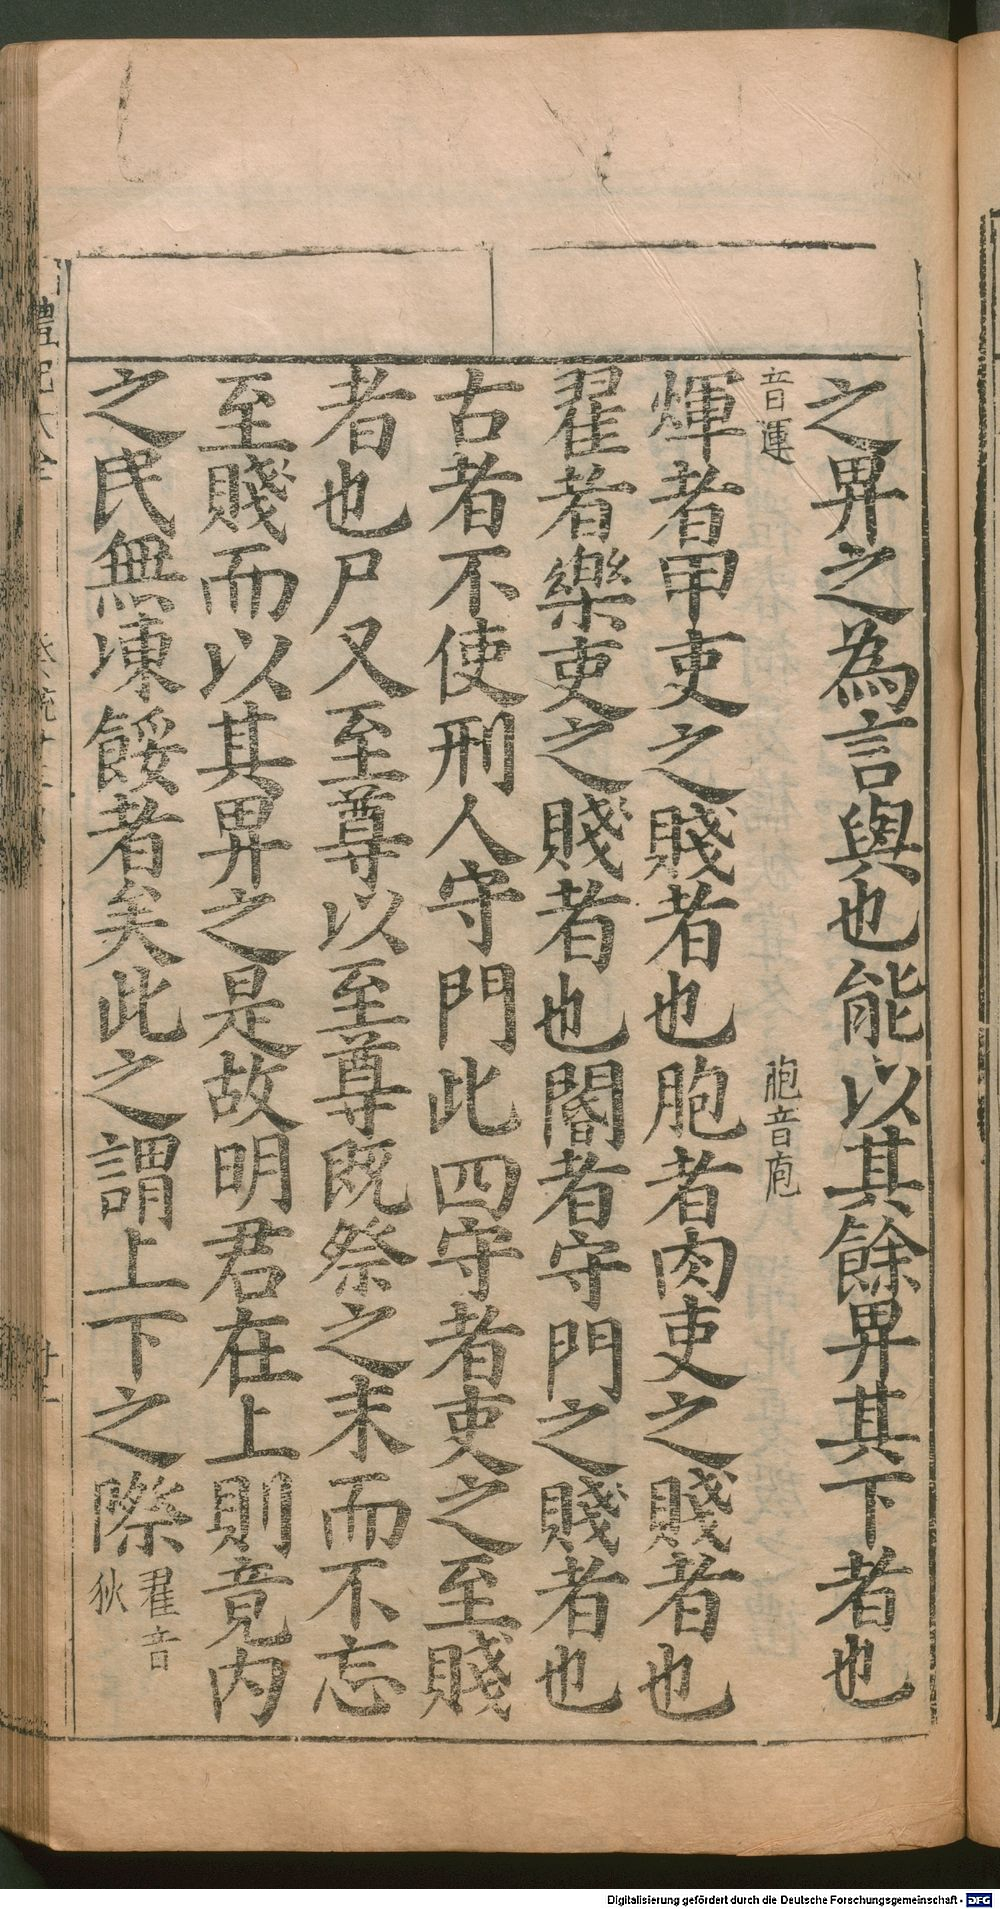 之畀之為言與也能以其餘畀其下者也
音運
胞音庖
煇者甲吏之賤者也胞者肉吏之賤者也
翟者樂吏之賤者也閽者守門之賤者也
古者不使刑人守門此四守者吏之至賤
者也尸又至尊以至尊既祭之末而不忘
至賤而以其畀之是故明君在上則竟内
之民無凍餒者矣此之謂上下之際
翟音
狄
Digitalisierung gefördert durch die Deutsche Forschungsgemeinschaft - DFG